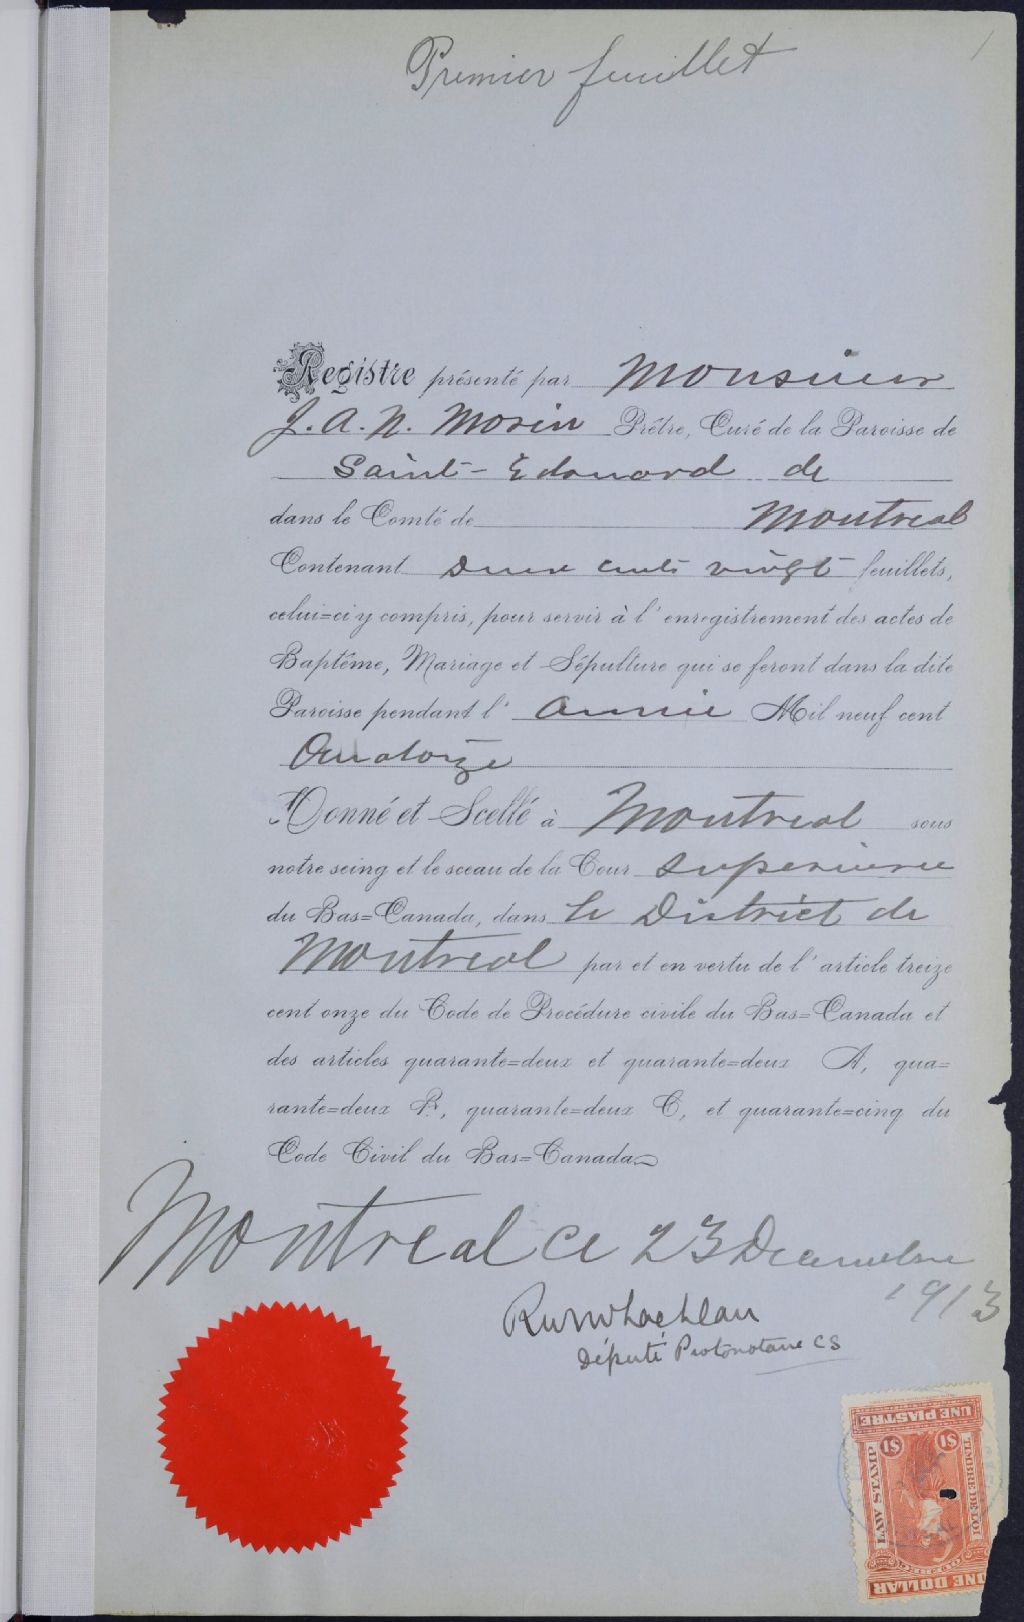 1
Premier feuillet
Registre présenté par Monsieur
J. A. N. Morin Prêtre, Curé de la Paroisse de
Saint-Edouard de
dans le Comté de Montreal
Contenant deux cents vingt feuillets,
celui=ci y compris, pour servir à l'enregistrement des actes de
Baptême, Mariage et Sépulture qui se feront dans la dite
Paroisse pendant l'année Mil neuf cent
Quatorze
Donné et Scellé à Montreal sous
notre seing et le sceau de la Cour Superieure
du Bas=Canada, dans le District de
Montreal par et en vertu de l'article treize
cent onze du Code de Procédure civile du Bas=Canada et
des articles quarante=deux et quarante=deux A, qua=
rante=deux B, quarante=deux C, et quarante=cinq du
Code Civil du Bas=Canada
Montreal ce 23 Decembre
1913
Député Protonotaire CS
UNE PIASTRE
$1 $1
LAW STAMP
TIMBRE DE LOI
QUEBEC
ONE DOLLAR